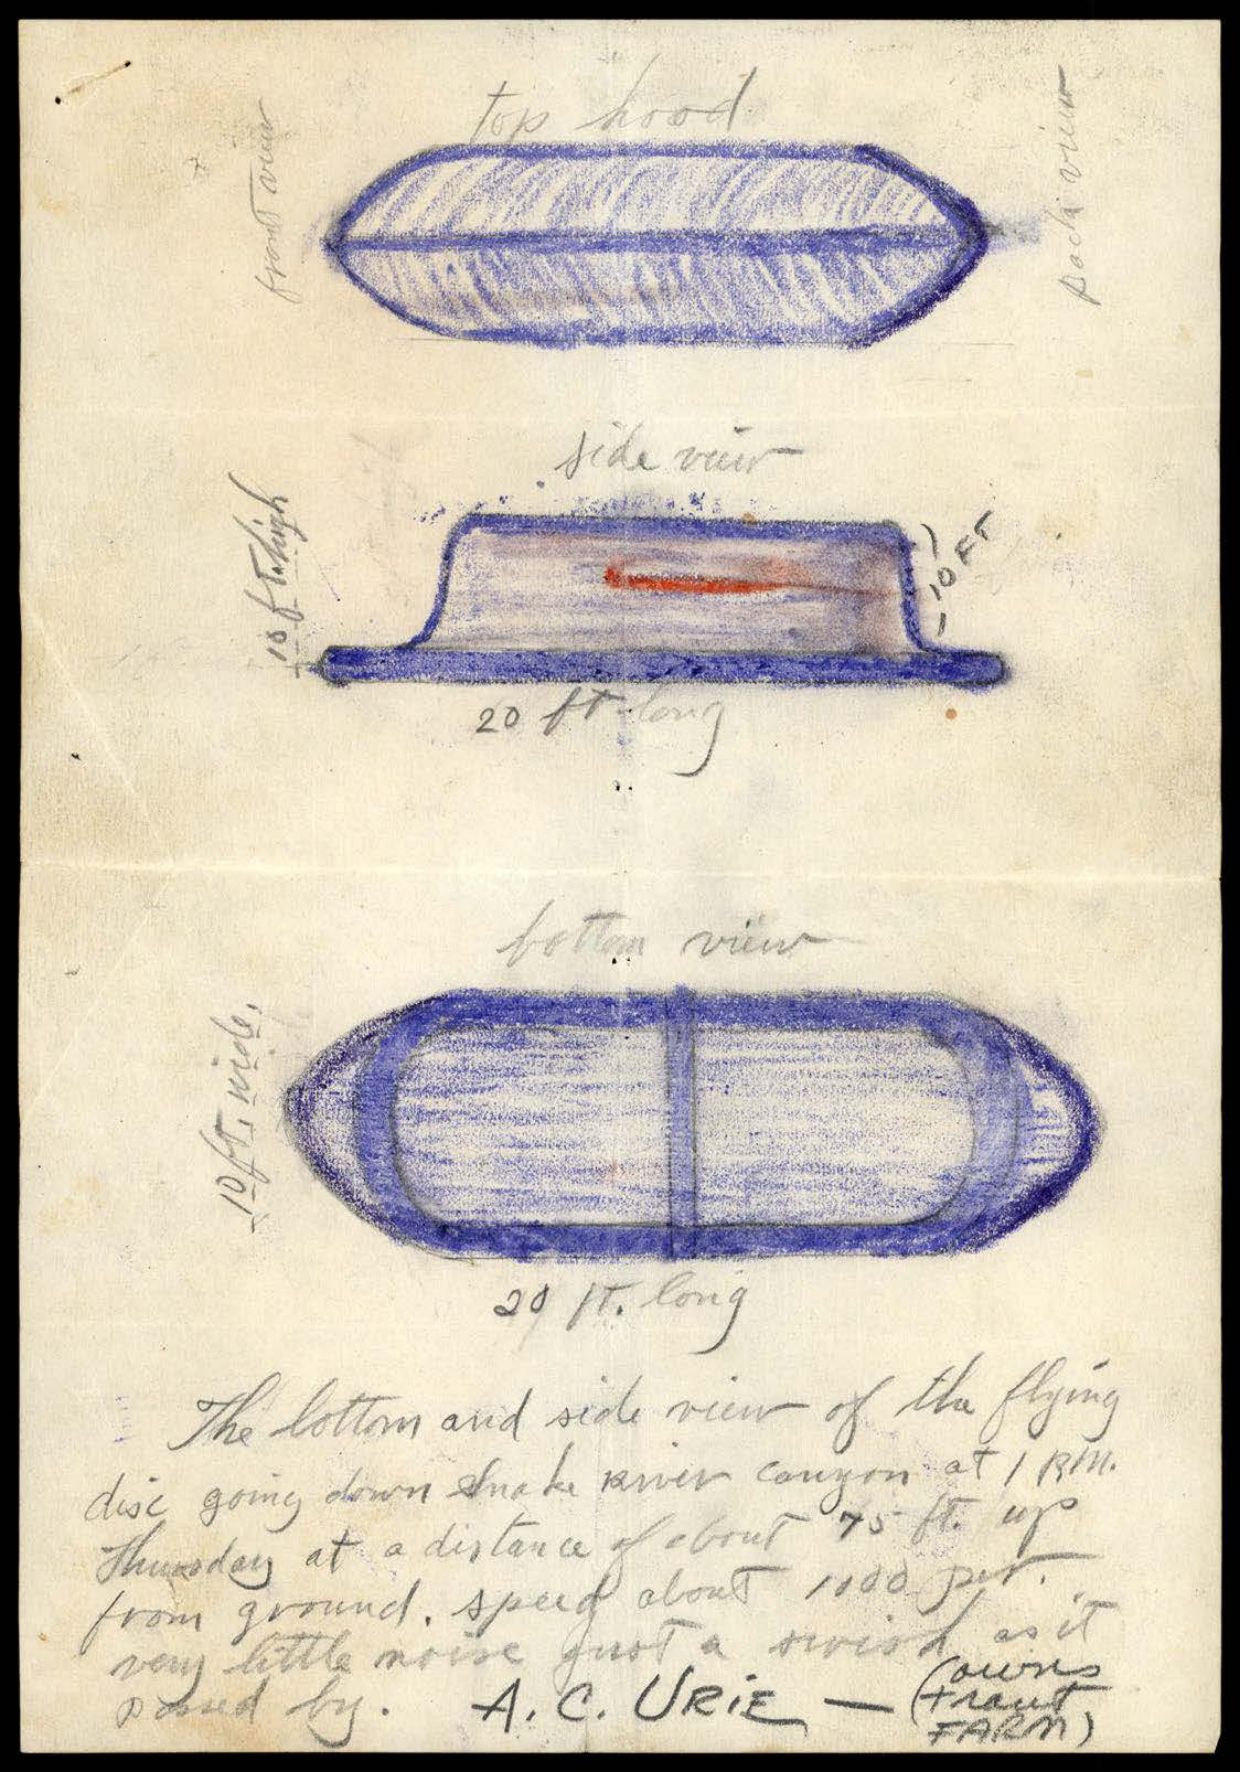 top hood
front view
back view
side view
10 ft. high
10 FT
20 ft long
bottom view
10 ft. wide.
20 ft. long
The bottom and side view of the flying
disc going down Snake River canyon at 1 P.M.
Thursday at a distance of about 75 ft. up
from ground. speed about 1000 per.
very little noise just a swish as it
passed by. A. C. URIE — (owns
trout
FARM)